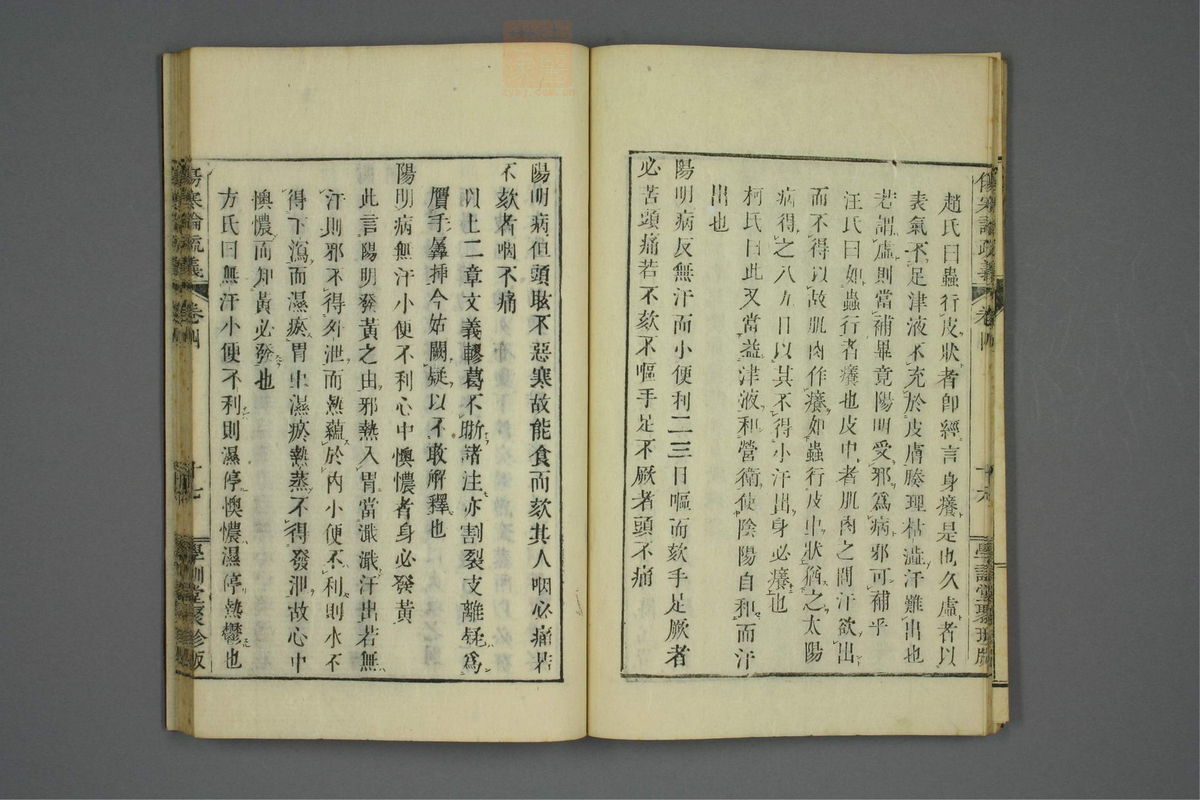 傷寒論疏義 卷四 十六 學訓堂聚珍版
趙氏曰蟲行皮狀者卽經言身癢是也久虛者以
表氣不足津液不充於皮膚腠理枯澁汗難出也
若謂虛則當補畢竟陽明受邪爲病邪可補乎
汪氏曰如蟲行者癢也皮中者肌肉之間汗欲出
而不得以故肌肉作癢如蟲行皮中狀猶之太陽
病得之八九日以其不得小汗出身必癢也
柯氏曰此又當益津液和營衛使陰陽自和而汗
出也
陽明病反無汗而小便利二三日嘔而欬手足厥者
必苦頭痛若不欬不嘔手足不厥者頭不痛
陽明病但頭眩不惡寒故能食而欬其人咽必痛若
不欬者咽不痛
以上二章文義轇葛不晰諸注亦割裂支離疑爲
贋手羼插今姑闕疑以不敢解釋也
陽明病無汗小便不利心中懊憹者身必發黃
此言陽明發黃之由邪熱入胃當濈濈汗出若無
汗則邪不得外泄而熱蘊於內小便不利則水不
得下瀉而濕瘀胃中濕瘀熱蒸不得發泄故心中
懊憹而知黃必發也
方氏曰無汗小便不利則濕停懊憹濕停熱鬱也
傷寒論疏義 卷四 十七 學訓堂聚珍版